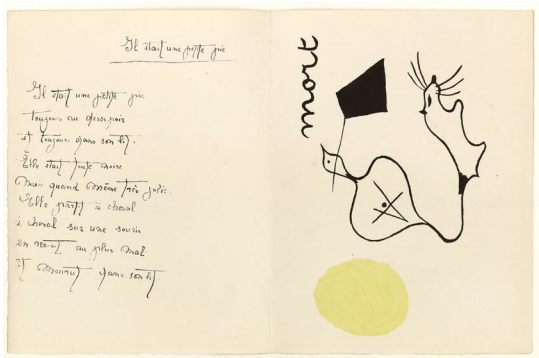 Il était une petite pie
Il était une petite pie
toujours au desespoir
et toujours dans son lit.
Elle était toute noire
Mais quand même très jolie.
Elle partit à cheval
à cheval sur une souris
en revint au plus mal
et mourut dans son lit.
mort